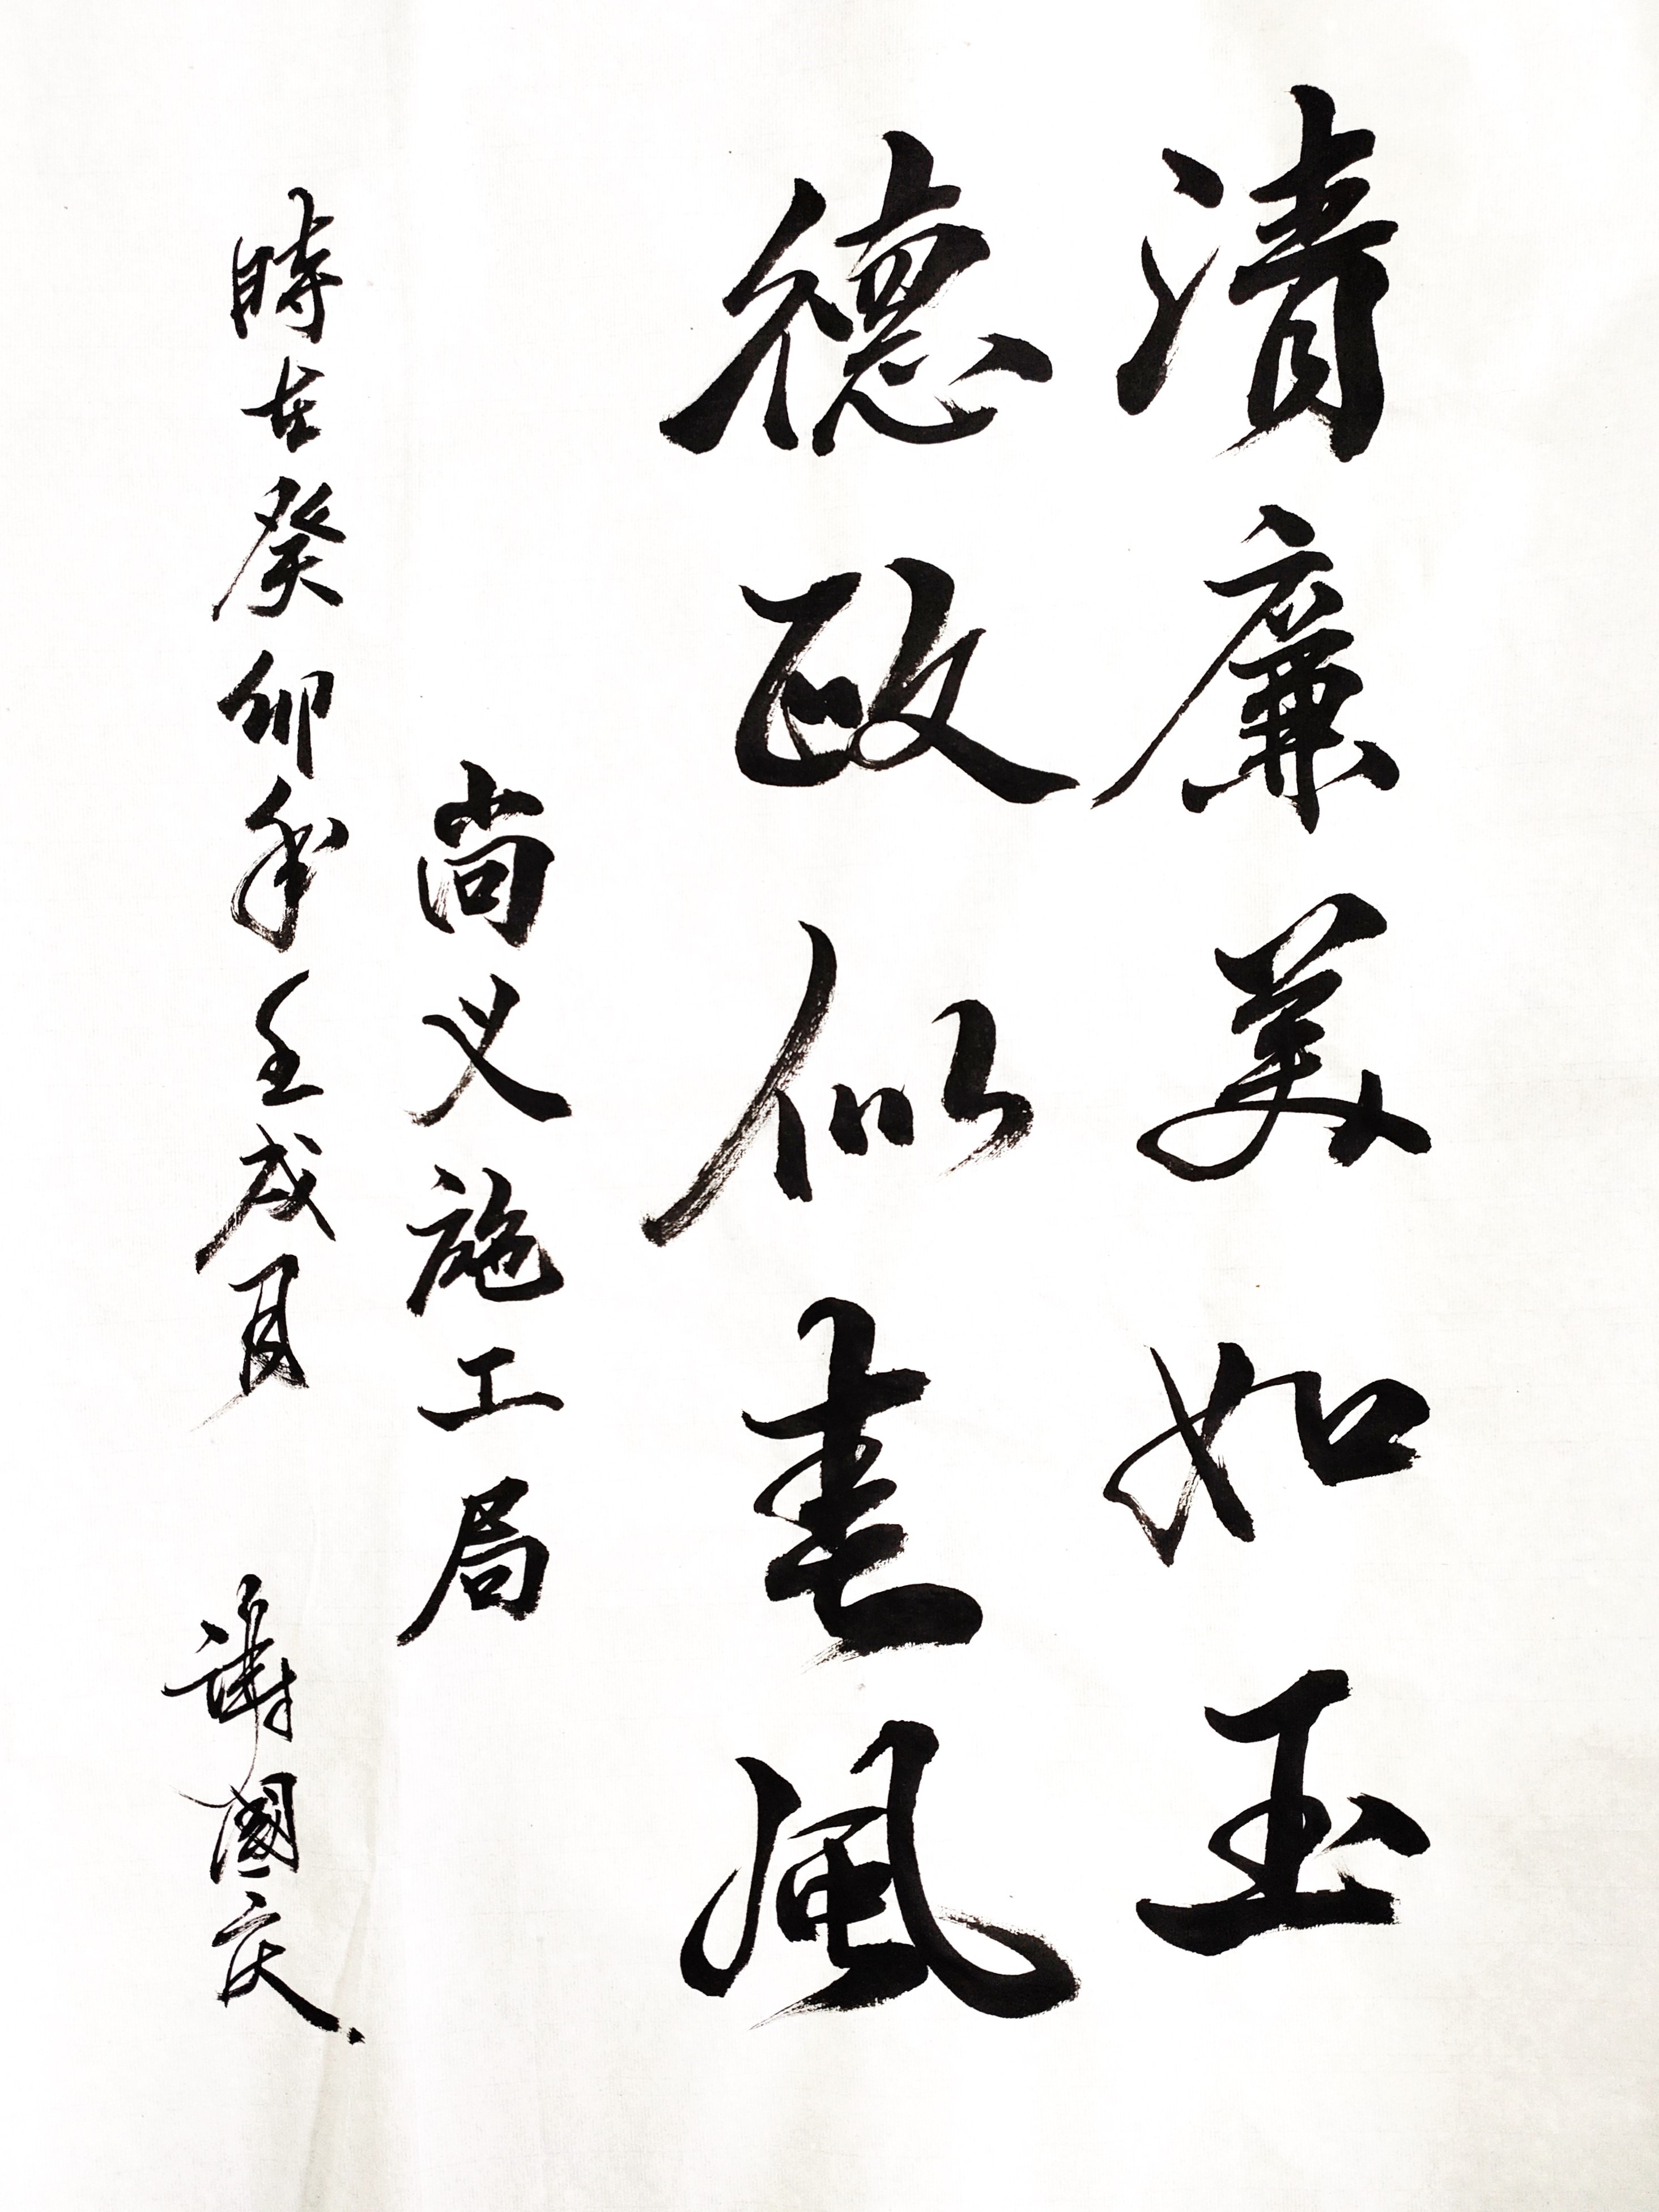 清廉美如玉
德政似春风
尚义施工局
時在癸卯年壬戌月 謝國庆